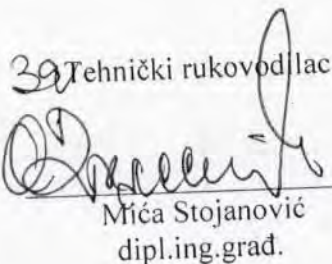 за Tehnički rukovodilac
Mića Stojanović
dipl.ing.građ.